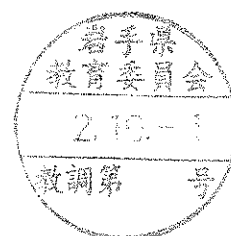 岩手県
教育委員会
2.10.-1
教調第　　号